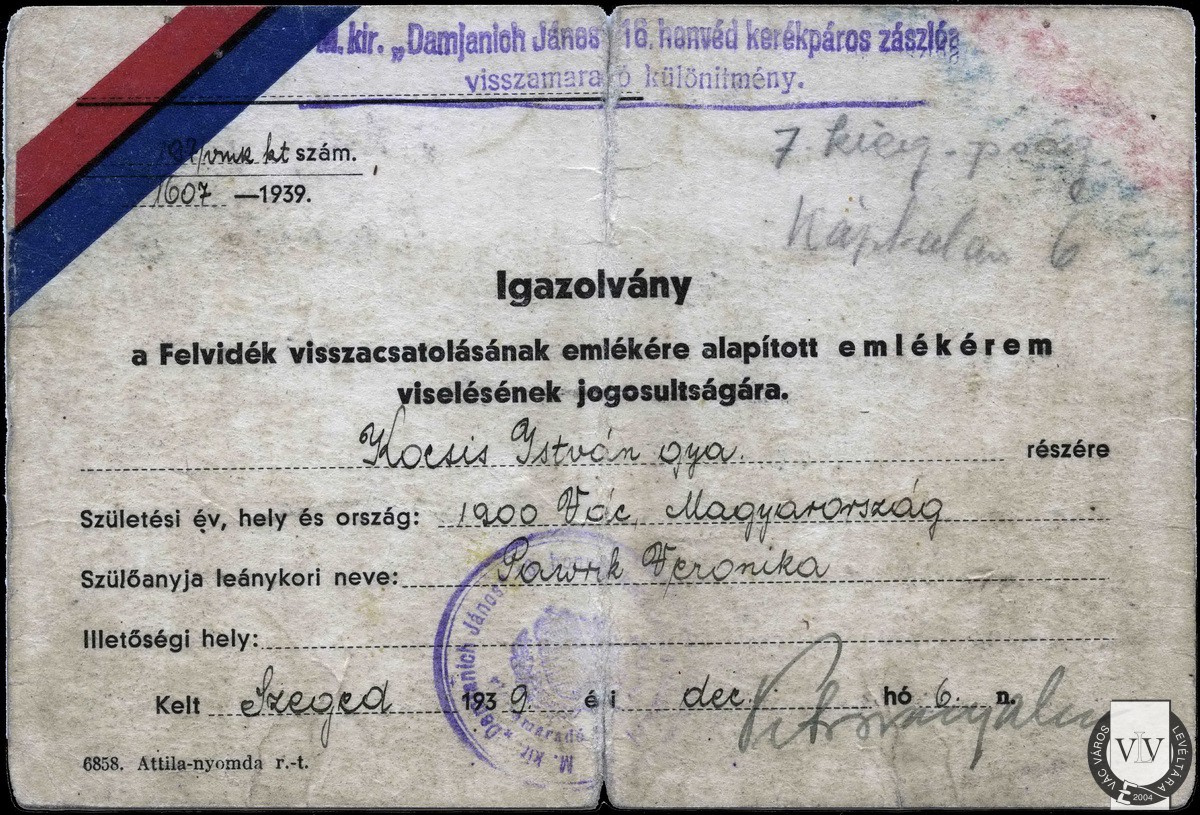 M. kir. „Damjanich János" 16. honvéd kerékpáros zászlóa
visszamaradó különítmény.
kt szám.
1607 —1939.
7. kieg.
Káptalan 6
Igazolvány
a Felvidék visszacsatolásának emlékére alapított emlékérem
viselésének jogosultságára.
Kocsis István gya. részére
Születési év, hely és ország: 1900 Vác, Magyarország
Szülőanyja leánykori neve: Veronika
Illetőségi hely:
Kelt Szeged 1939 évi dec. hó 6. n.
M. kir. Damjanich János
6858. Attila-nyomda r.-t.
VÁC VÁROS LEVÉLTÁRA
VLV
2004